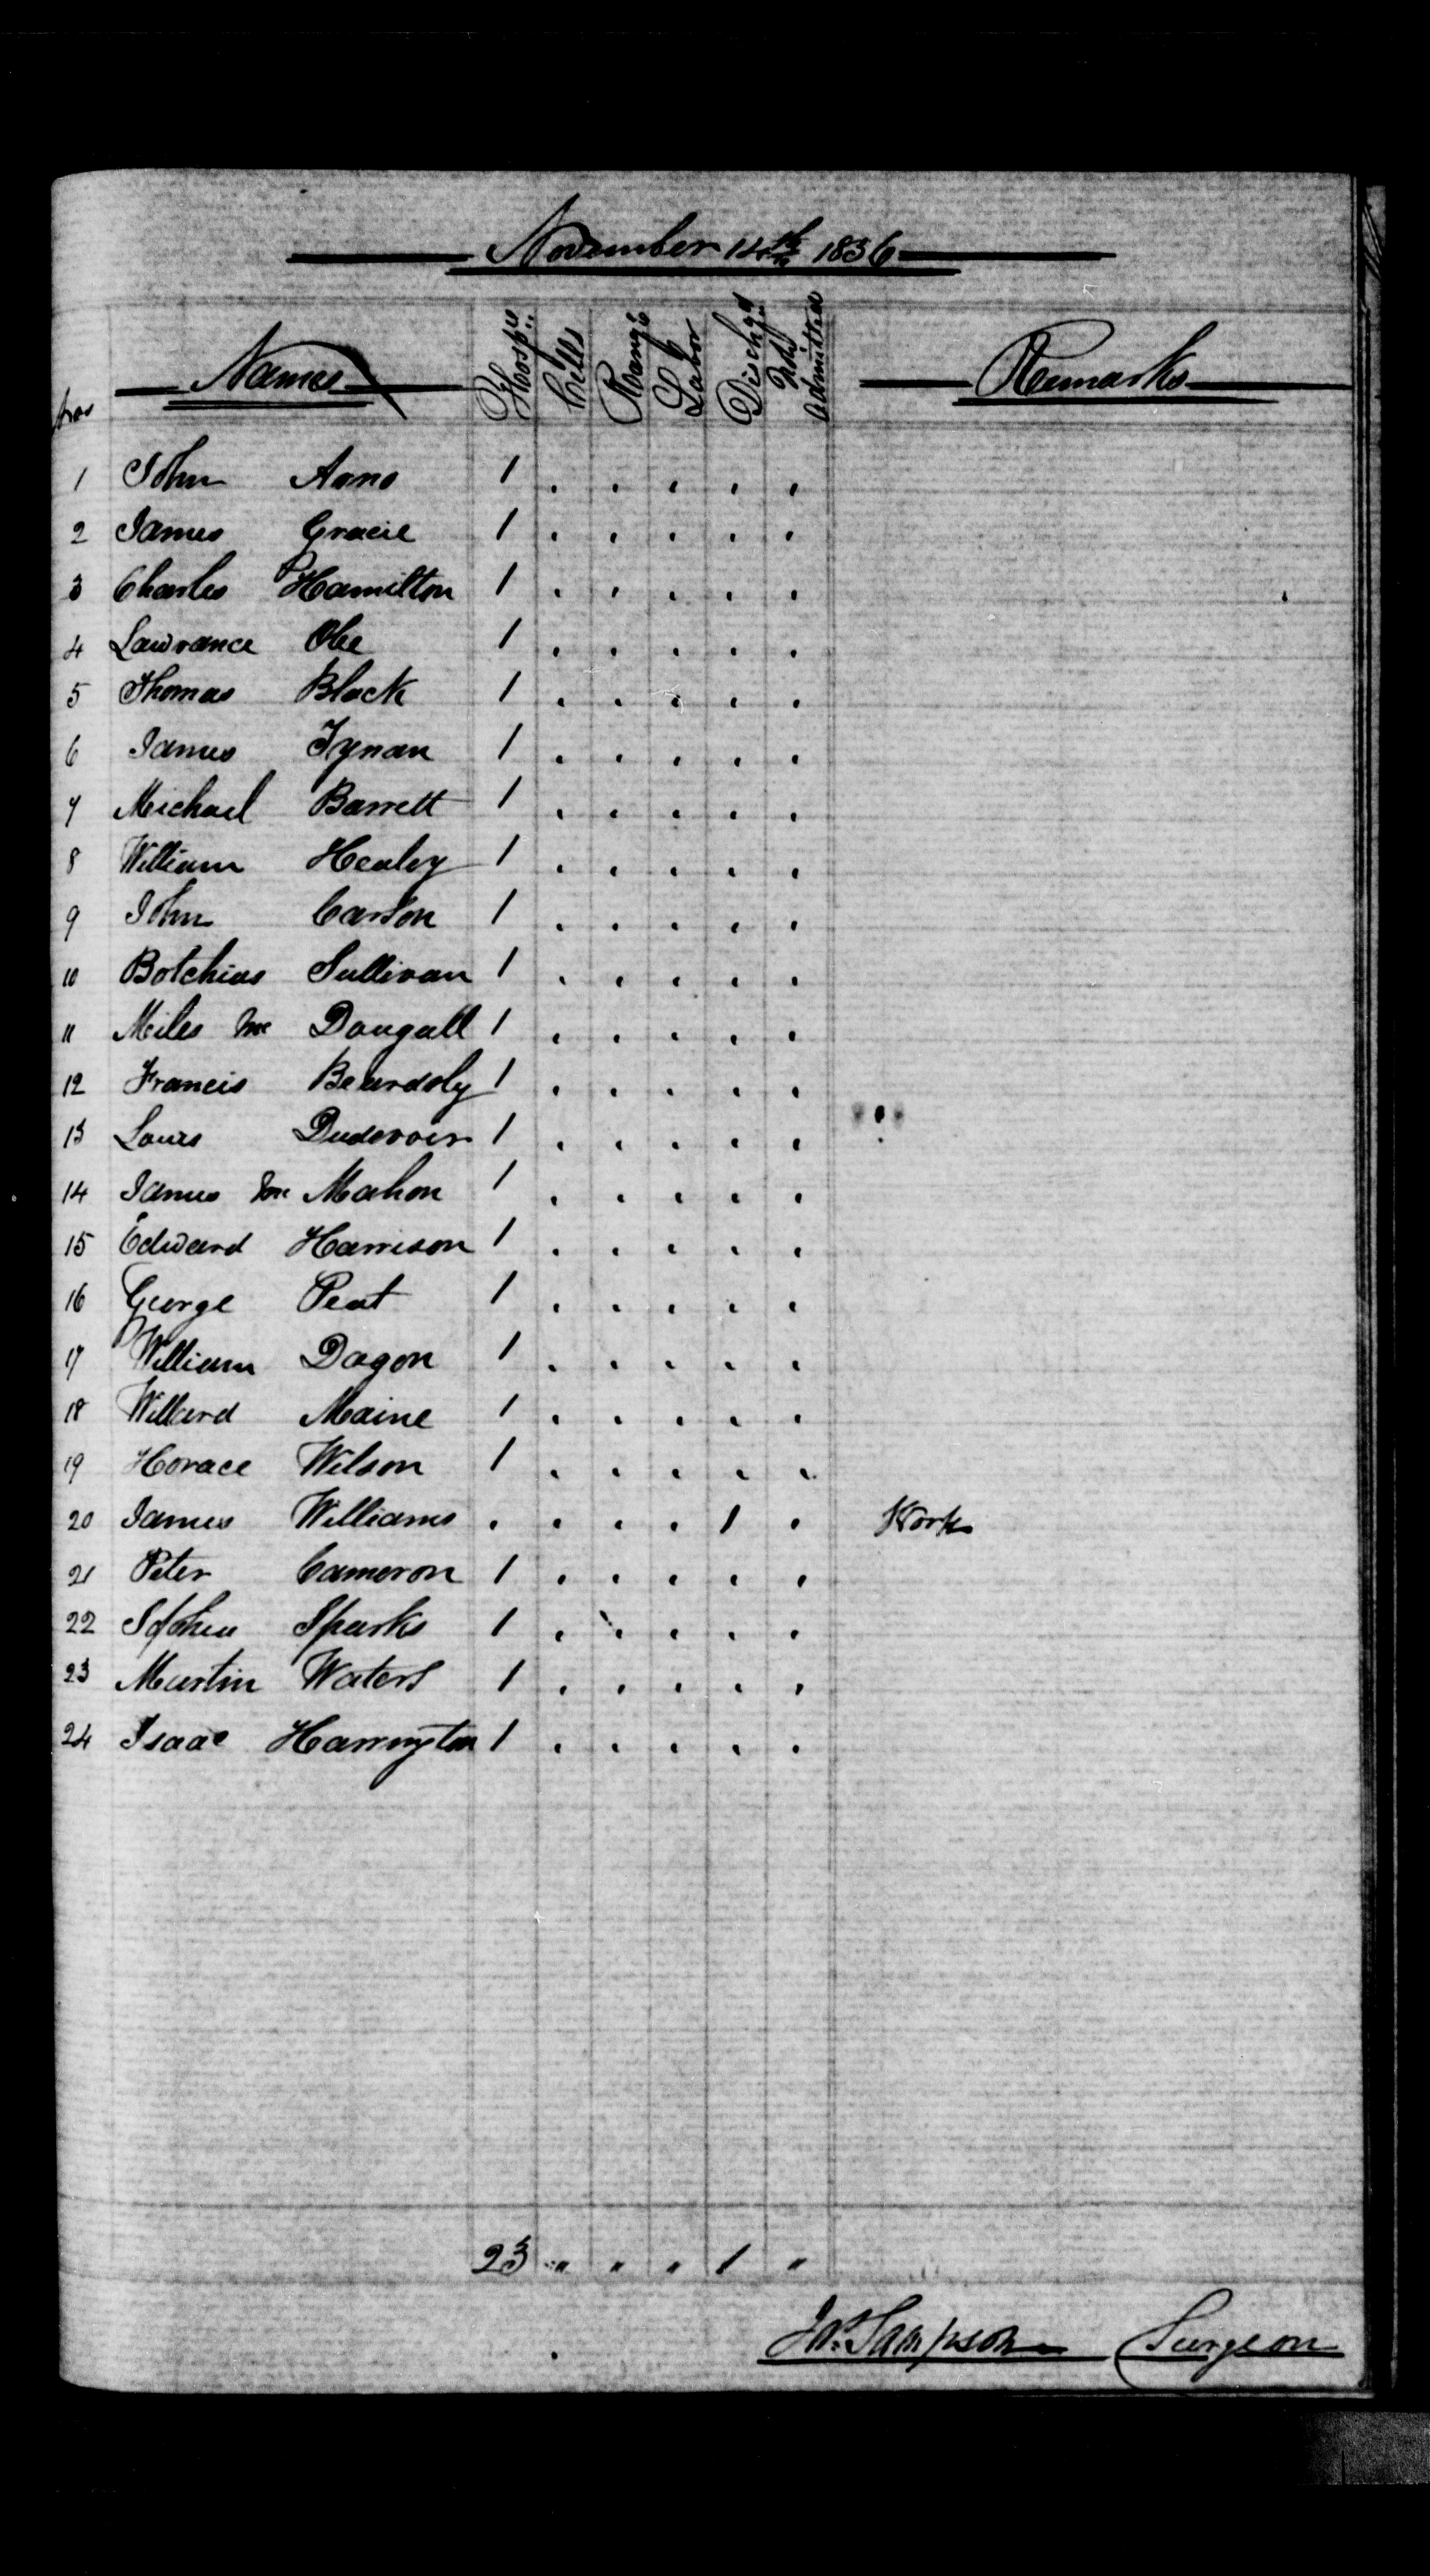 November 14th 1836
Nos Names Hospl Cells Rang's Labor Dischgd Not Admitted Remarks
1 John Anno 1 . . . . .
2 James Gracie 1 . . . . .
3 Charles Hamilton 1 . . . . .
4 Lawrance Obe 1 . . . . .
5 Thomas Black 1 . . . . .
6 James Tynan 1 . . . . .
7 Michael Barrett 1 . . . . .
8 William Healey 1 . . . . .
9 John Carson 1 . . . . .
10 Botchias Sullivan 1 . . . . .
11 Miles Mc Dougall 1 . . . . .
12 Francis Beardsly 1 . . . . .
13 Louis Dudevoir 1 . . . . .
14 James Mc Mahon 1 . . . . .
15 Edward Harrison 1 . . . . .
16 George Peat 1 . . . . .
17 William Dagon 1 . . . . .
18 Willard Maine 1 . . . . .
19 Horace Wilson 1 . . . . .
20 James Williams . . . . 1 . Work
21 Peter Cameron 1 . . . . .
22 Sparks 1 . . . . .
23 Martin Waters 1 . . . . .
24 Isaac Harrington 1 . . . . .
23 " " " 1 "
Jas. Sampson Surgeon